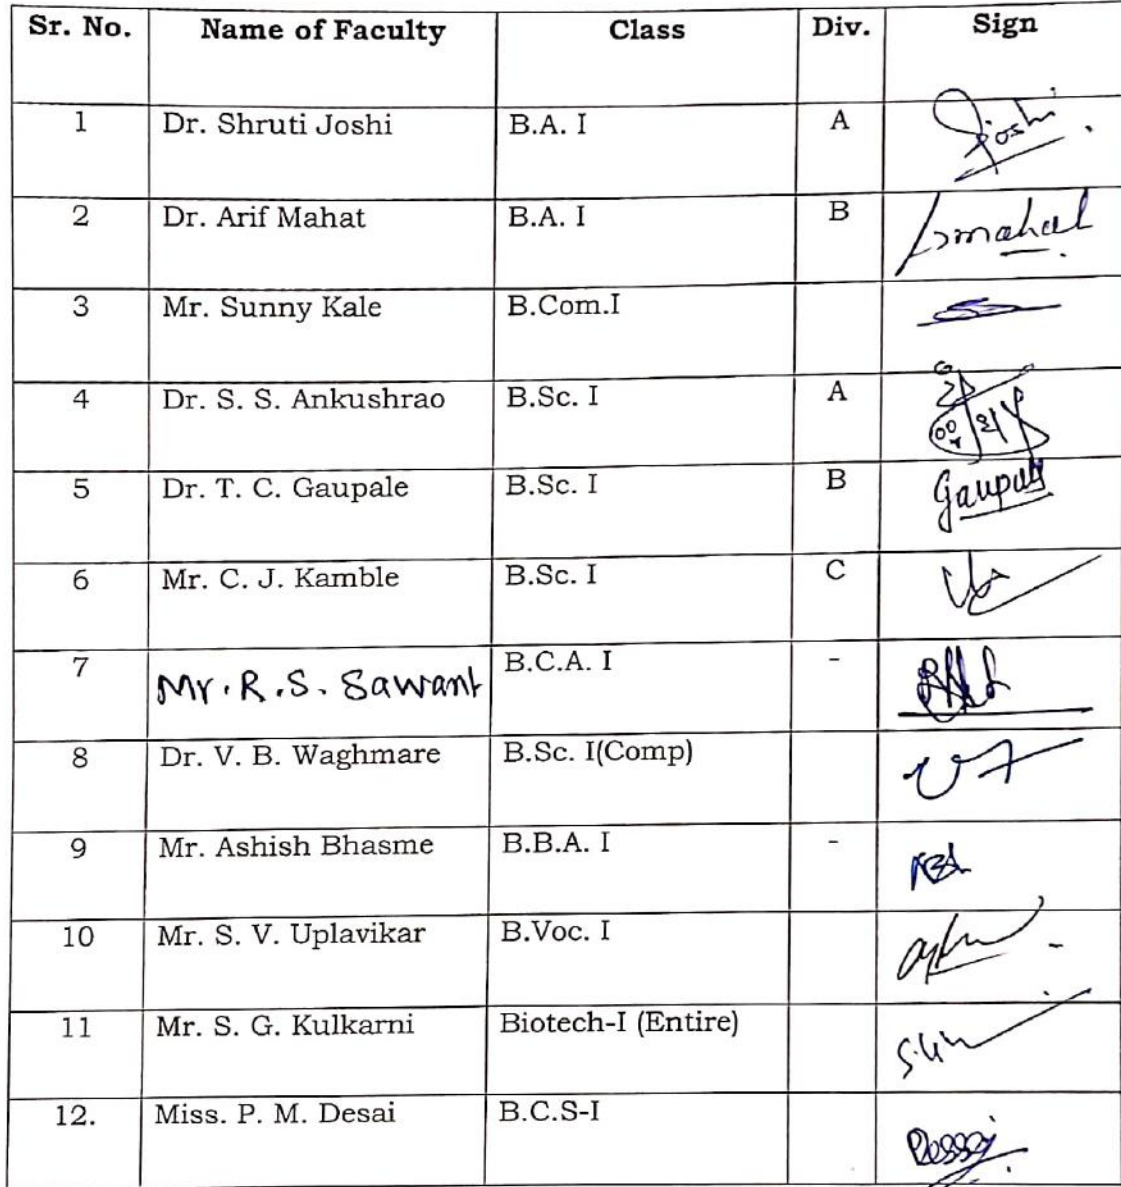 Sr. No. Name of Faculty Class Div. Sign
1 Dr. Shruti Joshi B.A. I A Joshi
2 Dr. Arif Mahat B.A. I B
3 Mr. Sunny Kale B.Com.I
4 Dr. S. S. Ankushrao B.Sc. I A
5 Dr. T. C. Gaupale B.Sc. I B Gaupale
6 Mr. C. J. Kamble B.Sc. I C
7 Mr. R. S. Sawant B.C.A. I -
8 Dr. V. B. Waghmare B.Sc. I(Comp)
9 Mr. Ashish Bhasme B.B.A. I -
10 Mr. S. V. Uplavikar B.Voc. I
11 Mr. S. G. Kulkarni Biotech-I (Entire)
12. Miss. P. M. Desai B.C.S-I